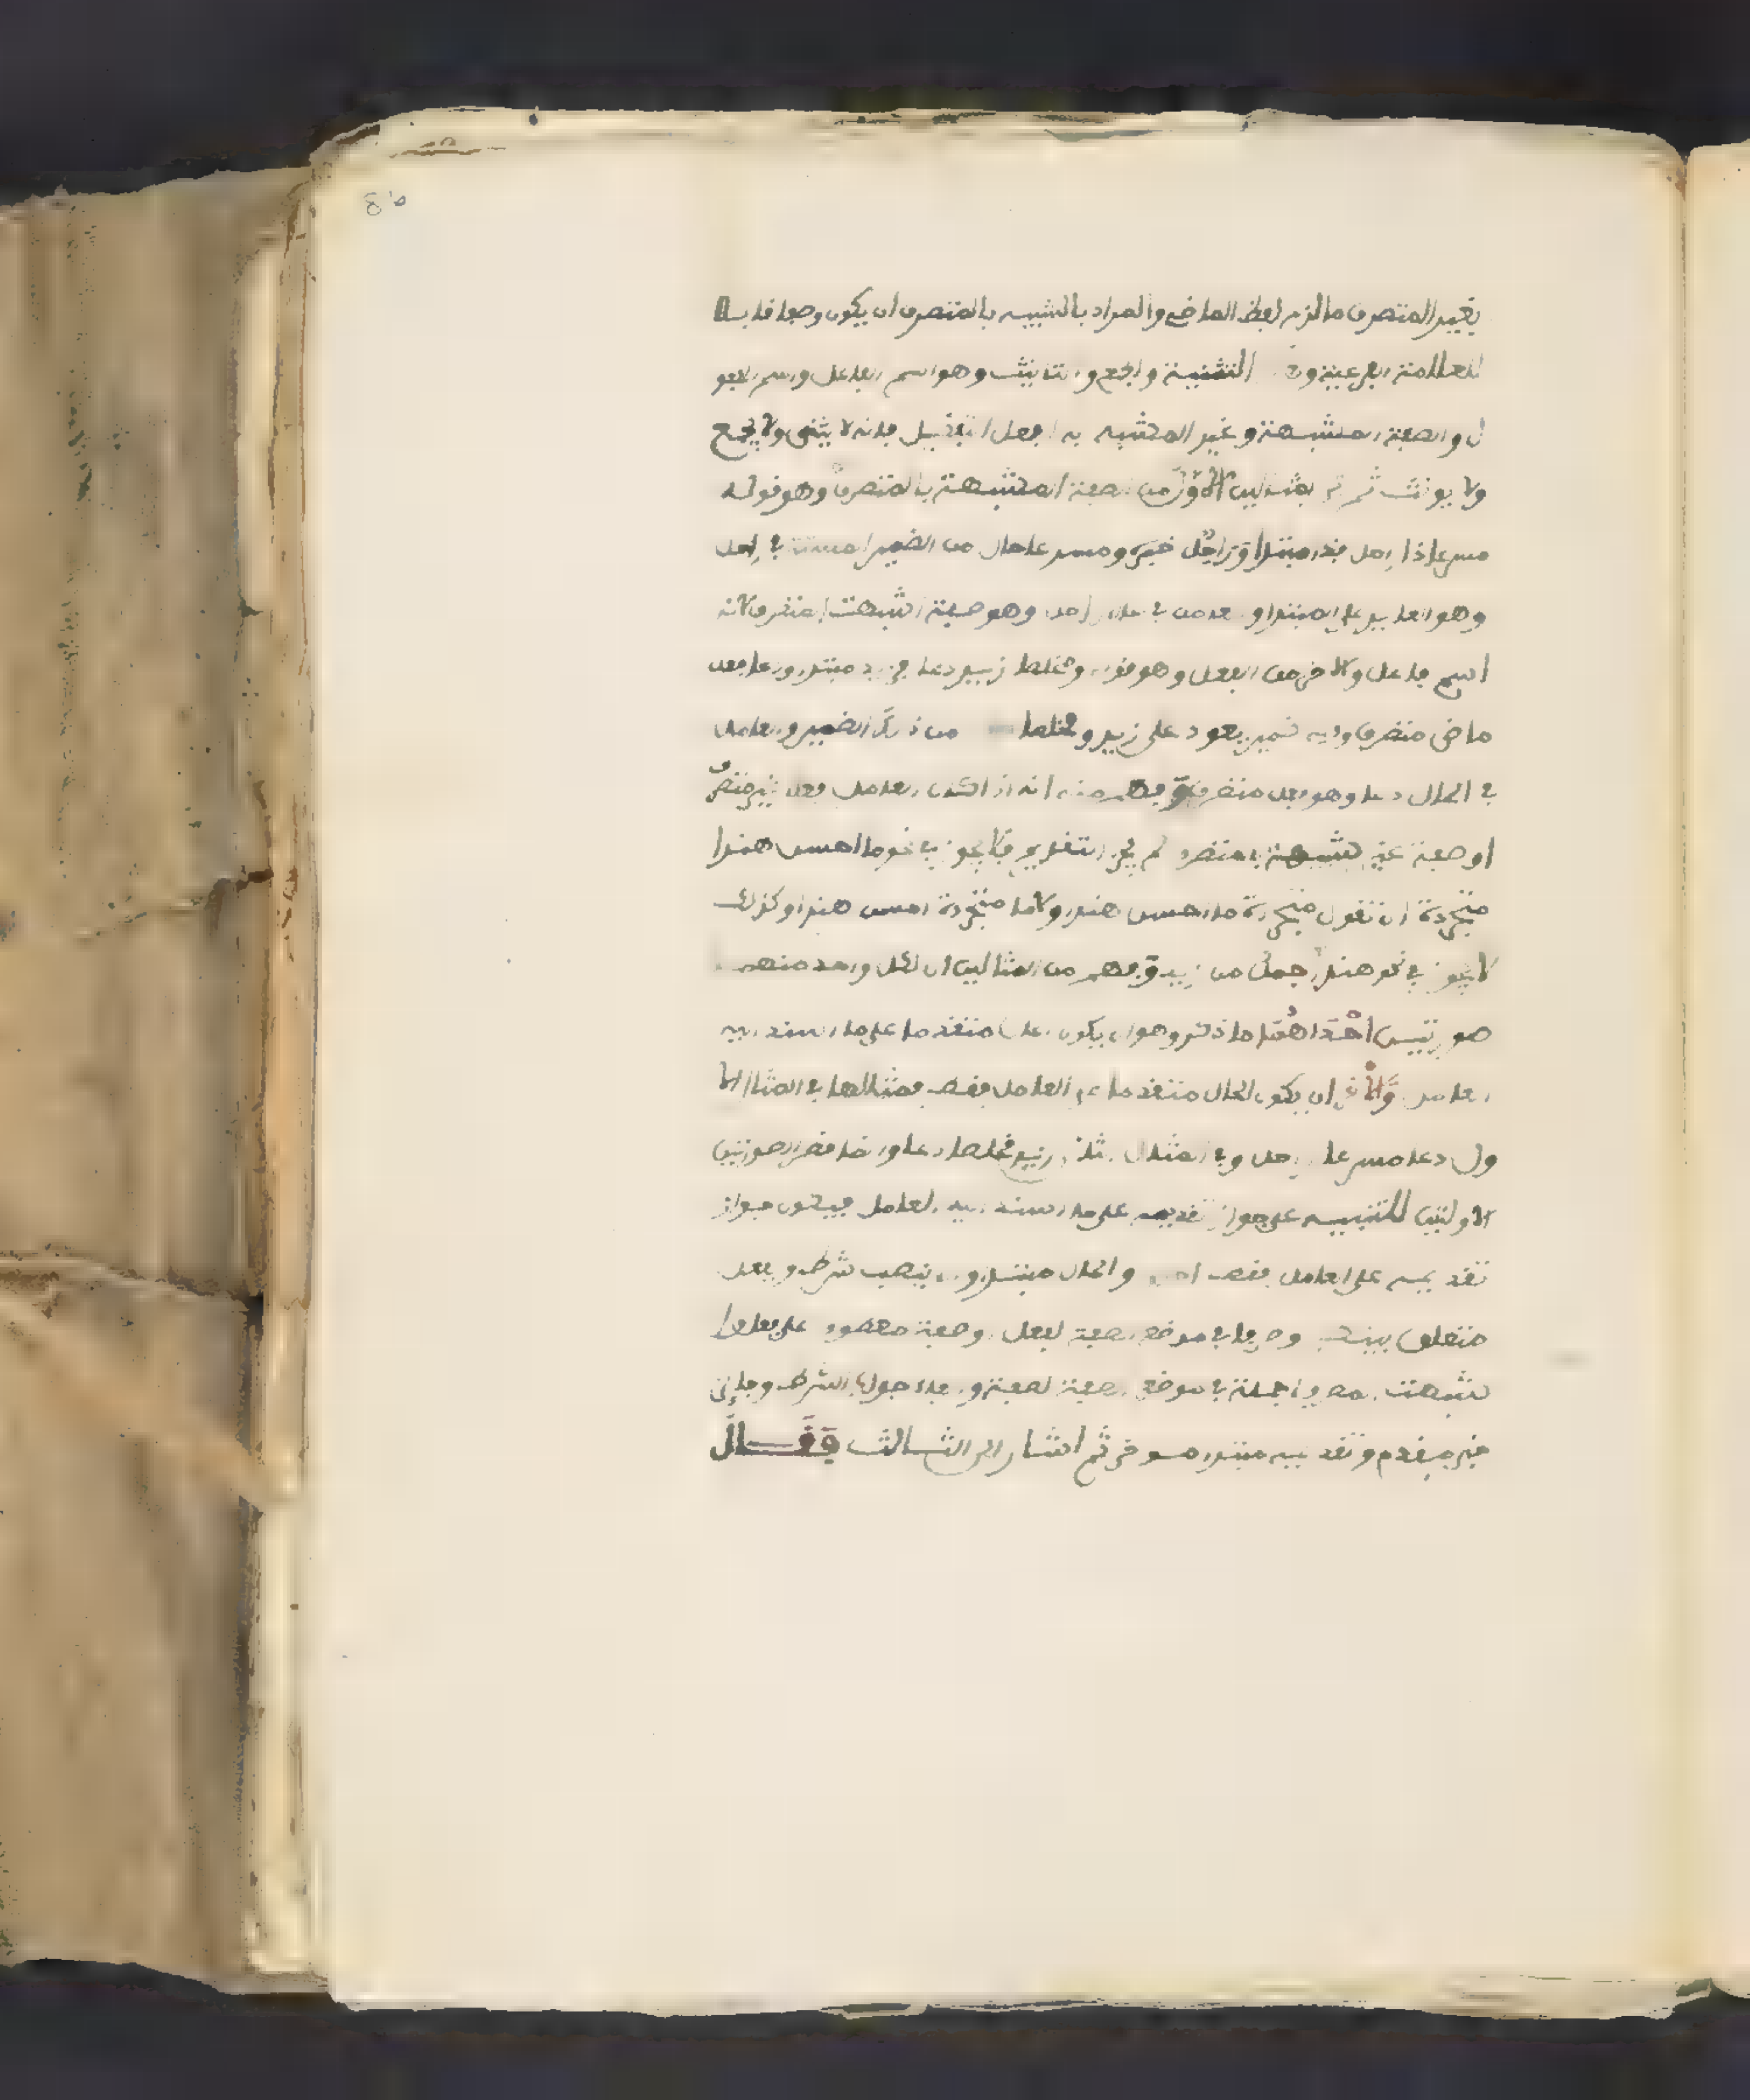 بغير المتصرف ما لزم لفظ الماضي والمراد بالشبيه بالمتصرف ان يكون وصفا قابلا
للعلامة الفرعية و التثنية والجمع والتانيث وهو اسم الفاعل واسم المفعو
ل والصفة المشبهة وغير المشبه به افعل التفضيل فانه لا يثنى ولا يجمع
ولا يونث ثم بمثالين الأوّل من الصفة المشبهة بالمتصرف وهو قوله
مسرعا ذا راحل فذا مبتدا وَرَاحِلٌ خبره ومسرعا حال من الضمير المستتر في راحل
وهو العايد على المبتدا و العامل في الحال راحل وهو صفة اشبهت المتصرف لانه
اسم فاعل والاخر من الفعل وهو قوله ومخلصا زيد دعا فزيد مبتدا ودعا فعل
ماضى متصرف وفيه ضمير يعود على زيد ومخلصا من ذلك الضمير والعامل
في الحال دعا وهو فعل متصرف وَفهم منه انه اذا كان العامل فعل غير متصرف
او صفة غير مشبهة بالمتصرف لم يجز التقديم فلا يجوز في نحو ما احسن هندا
متجردة ان تقول متجردة ما احسن هندا ولا ما متجردة احسن هندا وكذلك
لا يجوز في نحو هند اجمل من زيد وَفهم من المثالين ان لكل واحد منهما
صورتين احْدَاهُمَا ما ذكر وهو ان يكون الحال متقدما على ما اسند اليه
العامل وَالأخرى ان يكون الحال متقدما على العامل فقط فمثالها في المثال الا
ول ذا مسرعا راحل وفي المثال الثاني زيد مخلصا دعا وانما قصر الصورتين
الاولتين للتنبيه على جواز تقديمه على ما اسند اليه العامل فيكون جواز
تقديمه على العامل فقط احرى والحال مبتدا وان ينصب شرط وبفعل
متعلق بينصب وصرفا في موضع الصفة لفعل وصفة معطوف على فعل وا
شبهت المصرفا جملة في موضع الصفة لصفة والفاء جواب الشرط وجايز
خبر مقدم وتقديمه مبتدا موخر ثم اشار الى الثالث فَقَــالَ